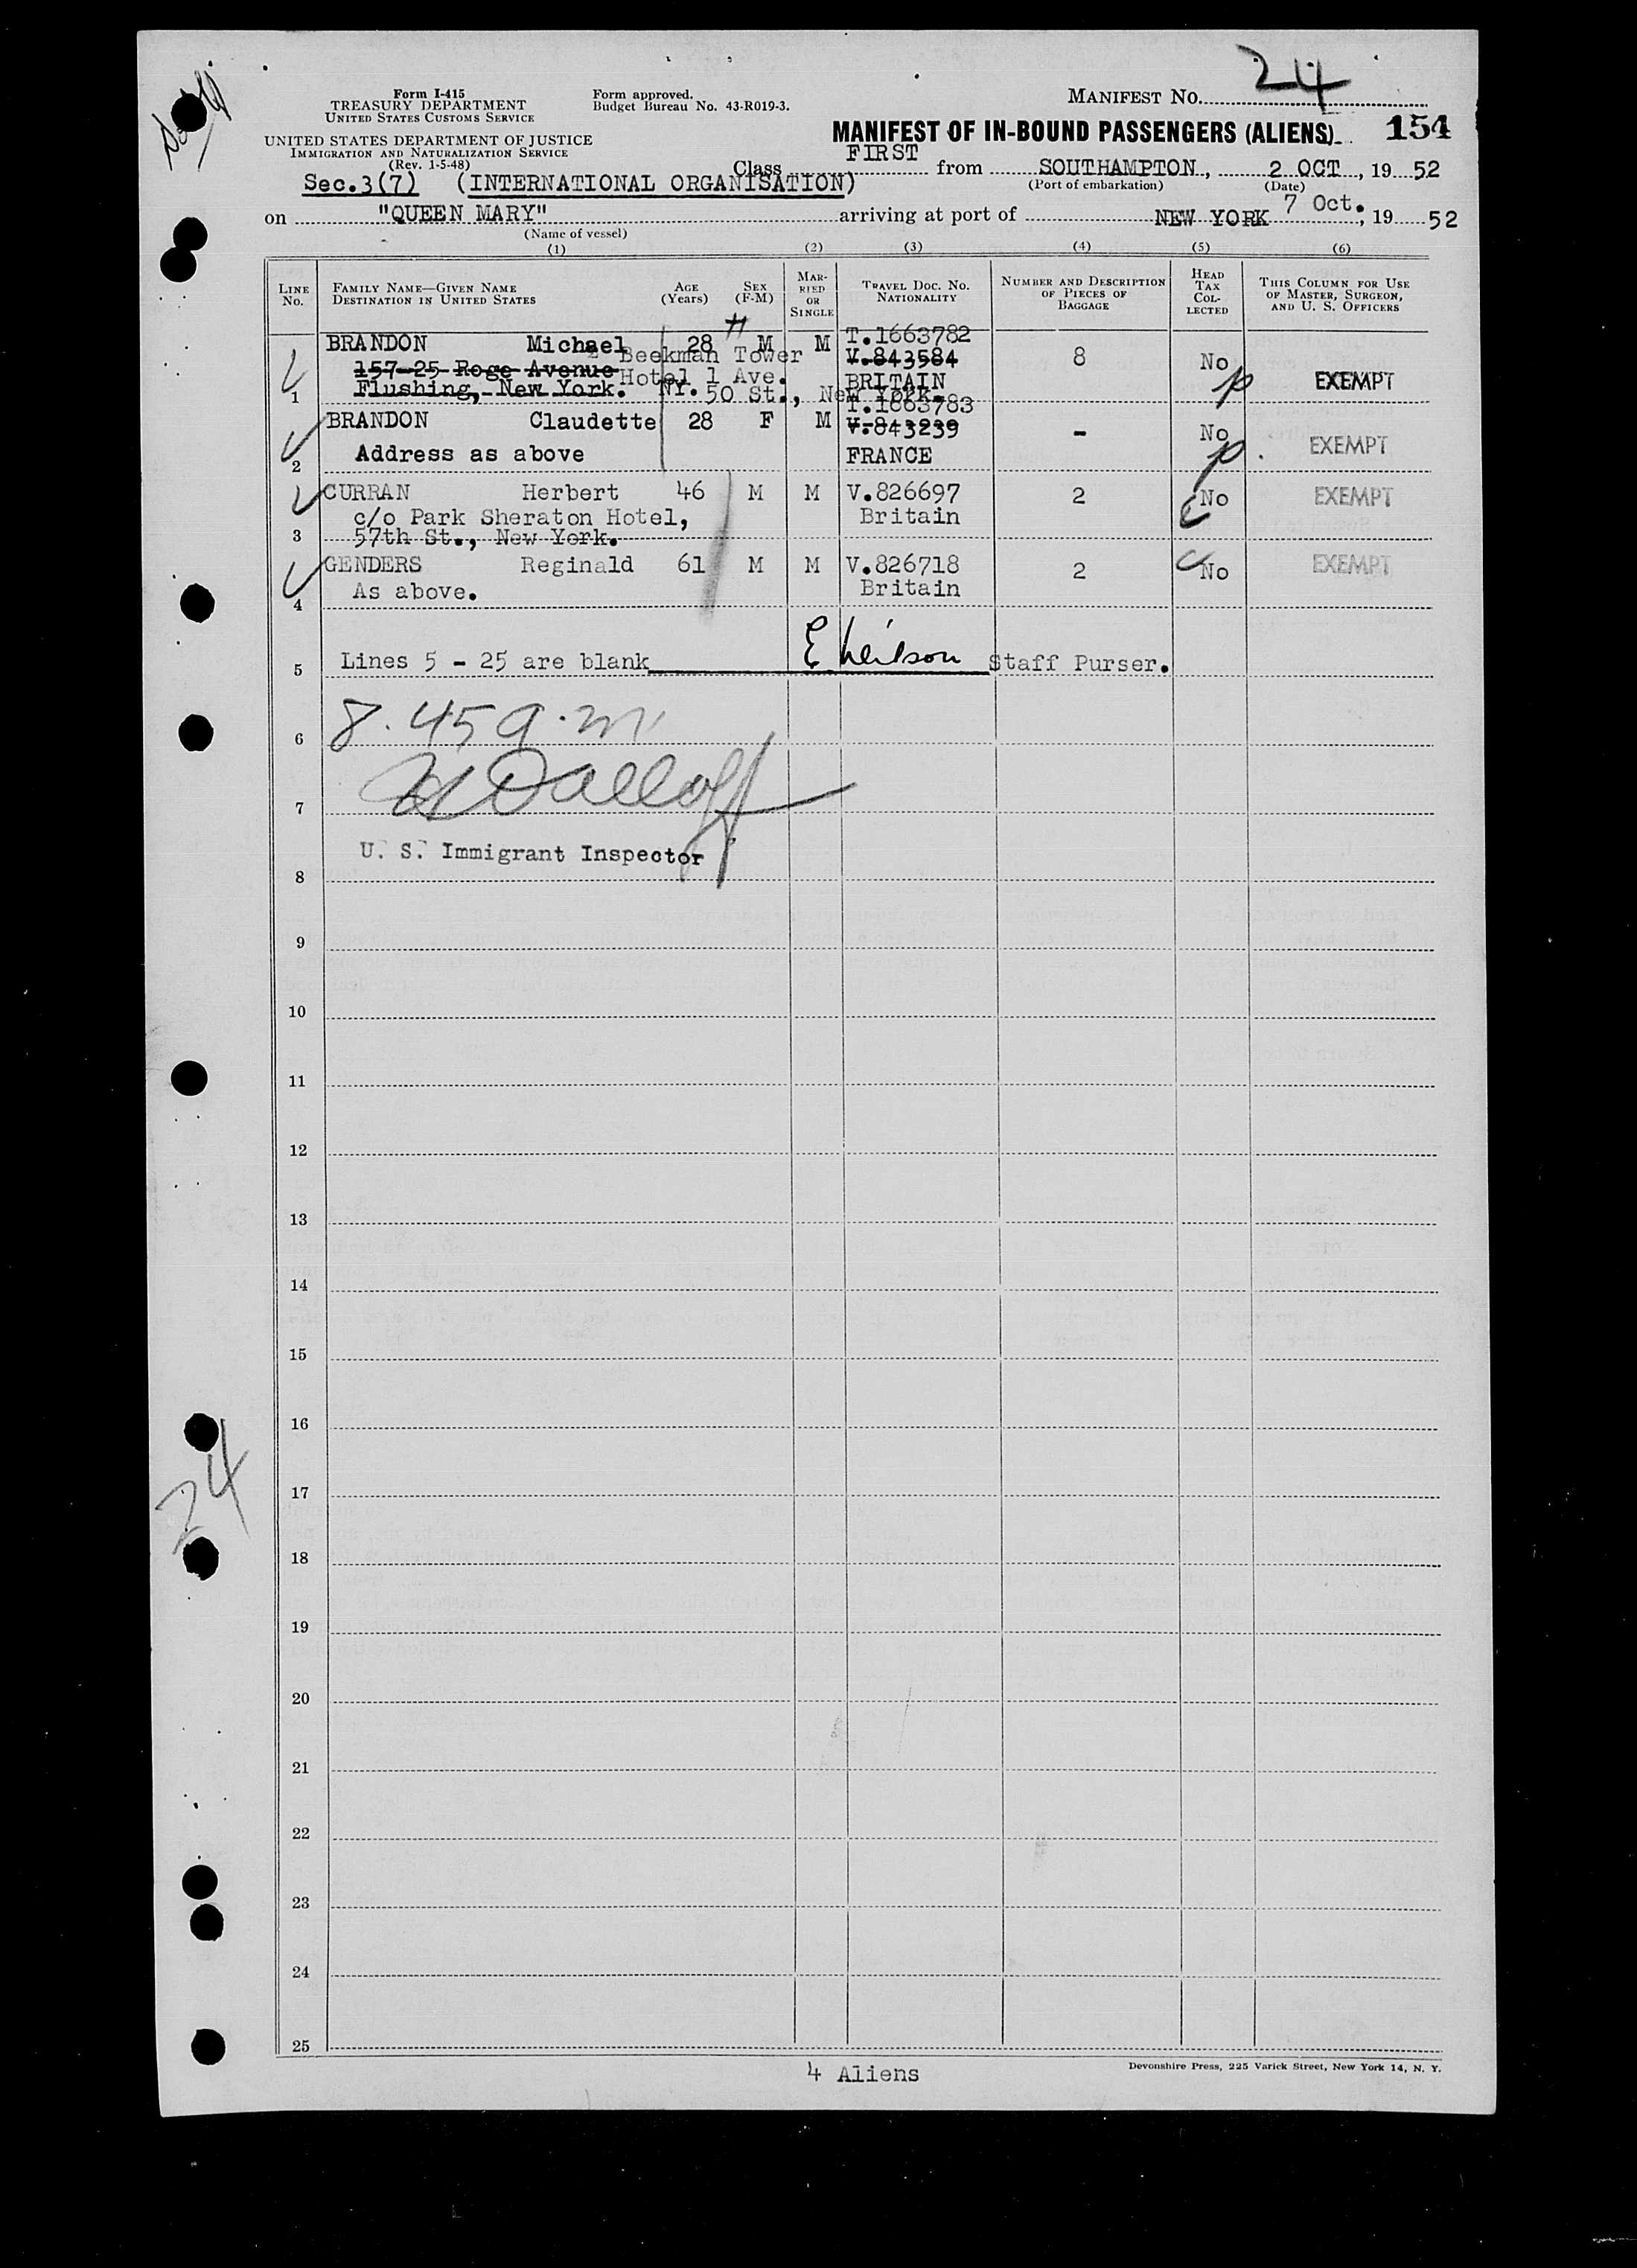 24
Form I-415
TREASURY DEPARTMENT
UNITED STATES CUSTOMS SERVICE
Form approved.
Budget Bureau No. 43-R019-3.
MANIFEST NO. 24
UNITED STATES DEPARTMENT OF JUSTICE
IMMIGRATION AND NATURALIZATION SERVICE
(Rev. 1-5-48)
MANIFEST OF IN-BOUND PASSENGERS (ALIENS) 154
Class FIRST from SOUTHAMPTON, 2 OCT, 19 52
(Port of embarkation) (Date)
Sec.3(7) (INTERNATIONAL ORGANISATION)
on "QUEEN MARY" arriving at port of NEW YORK 7 Oct., 19 52
(Name of vessel)
(1) (2) (3) (4) (5) (6)
LINE NO. FAMILY NAME—GIVEN NAME DESTINATION IN UNITED STATES AGE (Years) SEX (F-M) MARRIED OR SINGLE TRAVEL DOC. NO. NATIONALITY NUMBER AND DESCRIPTION OF PIECES OF BAGGAGE HEAD TAX COLLECTED THIS COLUMN FOR USE OF MASTER, SURGEON, AND U. S. OFFICERS
BRANDON Michael 28 M M T.1663782
157-25 Roge Avenue Beekman Tower V.843584 8 No
Flushing, New York. Hotel 1 Ave. BRITAIN EXEMPT
1 NY. 50 St., New York.
T.1663783
BRANDON Claudette 28 F M V.843239 - No
2 Address as above FRANCE EXEMPT
CURRAN Herbert 46 M M V.826697 2 No EXEMPT
c/o Park Sheraton Hotel, Britain
3 57th St., New York.
GENDERS Reginald 61 M M V.826718 2 No EXEMPT
As above. Britain
4
5 Lines 5 - 25 are blank Staff Purser.
6 8.45 a.m
7
U. S. Immigrant Inspector
8
9
10
11
12
13
14
15
16
24
17
18
19
20
21
22
23
24
25
4 Aliens
Devonshire Press, 225 Varick Street, New York 14, N. Y.